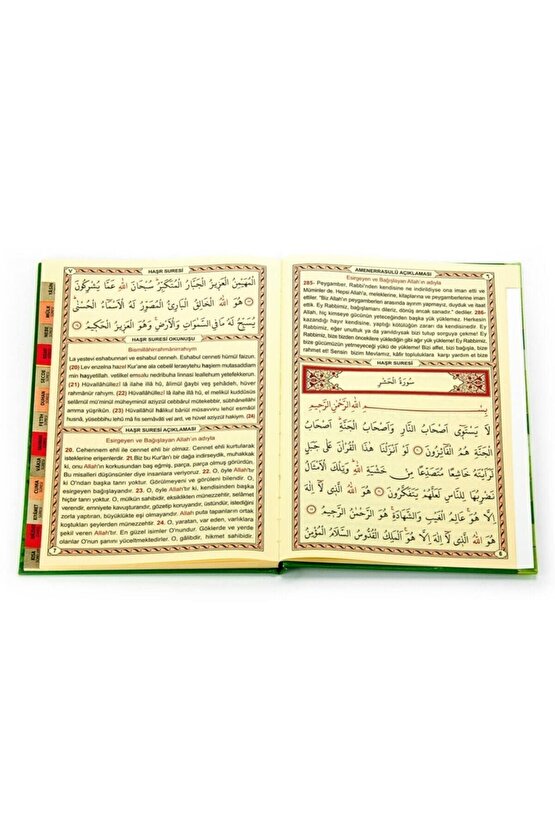 AMENERRASULÜ AÇIKLAMASI
٦
Esirgeyen ve Bağışlayan Allah'ın adıyla
285- Peygamber, Rabbi'nden kendisine ne indirildiyse ona iman etti ve
Müminler de. Hepsi Allah'a, meleklerine, kitaplarına ve peygamberlerine iman
ettiler. "Biz Allah'ın peygamberleri arasında ayırım yapmayız, duyduk ve itaat
ettik. Ey Rabbimiz, bağışlamanı dileriz, dönüş ancak sanadır." dediler. 286-
Allah, hiç kimseye gücünün yeteceğinden başka yük yüklemez. Herkesin
kazandığı hayır kendisine, yaptığı kötülüğün zararı da kendisinedir. Ey
Rabbimiz, eğer unuttuk ya da yanıldıysak bizi tutup sorguya çekme! Ey
Rabbimiz, bize bizden öncekilere yüklediğin gibi ağır yük yükleme! Ey Rabbimiz,
bize gücümüzün yetmeyeceği yükü de yükleme! Bizi affet, bizi bağışla, bize
rahmet et! Sensin bizim Mevlamız, kâfir topluluklara karşı yardım et bize
HAŞR SURESİ
سُورَةُ الْحَشْرِ
بِسْمِ اللّٰهِ الرَّحْمٰنِ الرَّحِيمِ
لَا يَسْتَوِى اَصْحَابُ النَّارِ وَاَصْحَابُ الْجَنَّةِ اَصْحَابُ
الْجَنَّةِ هُمُ الْفَائِزُونَ لَوْ اَنْزَلْنَا هٰذَا الْقُرْاٰنَ عَلٰى جَبَلٍ
لَرَاَيْتَهُ خَاشِعًا مُتَصَدِّعًا مِنْ خَشْيَةِ اللّٰهِ وَتِلْكَ الْاَمْثَالُ
نَضْرِبُهَا لِلنَّاسِ لَعَلَّهُمْ يَتَفَكَّرُونَ هُوَ اللّٰهُ الَّذِى لَا اِلٰهَ
اِلَّا هُوَ عَالِمُ الْغَيْبِ وَالشَّهَادَةِ هُوَ الرَّحْمٰنُ الرَّحِيمُ
هُوَ اللّٰهُ الَّذِى لَا اِلٰهَ اِلَّا هُوَ اَلْمَلِكُ الْقُدُّوسُ السَّلَامُ الْمُؤْمِنُ
6
٧
HAŞR SURESİ
الْمُهَيْمِنُ الْعَزِيزُ الْجَبَّارُ الْمُتَكَبِّرُ سُبْحَانَ اللّٰهِ عَمَّا يُشْرِكُونَ
هُوَ اللّٰهُ الْخَالِقُ الْبَارِئُ الْمُصَوِّرُ لَهُ الْاَسْمَاءُ الْحُسْنٰى
يُسَبِّحُ لَهُ مَا فِى السَّمٰوَاتِ وَالْاَرْضِ وَهُوَ الْعَزِيزُ الْحَكِيمُ
HAŞR SURESİ OKUNUŞU
Bismillâhirrahmânirrahıym
La yestevi eshabunnari ve eshabul cenneti. Eshabul cenneti hümül faizun.
(20) Lev enzelna hazel Kur'ane ala cebelil leraeytehu haşiem mutasaddiam
min haşyetillah. vetilkel emsalu nedribuha linnasi leallehum yetefekkerun.
(21) Hüvallâhüllezî lâ ilahe illâ hû, âlimül ğaybi veş şehâdeh, hüver
rahmânür rahym. (22) Hüvallâhüllezî lâ ilâhe illâ hû, el melikül kuddûsüs
selâmül mü'minül müheyminül azîzül cebbârul mütekebbir, sübhânellâhi
amma yüşrikûn. (23) Hüvallâhül hâlikul bâriül müsavviru lehül esmâül
husnâ, yüsebbihu lehû mâ fis semâvâti vel ard, ve hüvel aziyzül hakiym. (24)
HAŞR SURESİ AÇIKLAMASI
Esirgeyen ve Bağışlayan Allah'ın adıyla
20. Cehennem ehli ile cennet ehli bir olmaz. Cennet ehli kurtularak
isteklerine erişenlerdir. 21.Biz bu Kur'ân'ı bir dağa indirseydik, muhakkak
ki, onu Allah'ın korkusundan baş eğmiş, parça, parça olmuş görürdün.
Bu misalleri düşünsünler diye insanlara veriyoruz. 22. O, öyle Allah'tır
ki O'ndan başka tanrı yoktur. Görülmeyeni ve görüleni bilendir. O,
esirgeyen bağışlayandır. 23. O, öyle Allah'tır ki, kendisinden başka
hiçbir tanrı yoktur. O, mülkün sahibidir, eksiklikten münezzehtir, selâmet
verendir, emniyete kavuşturandır, gözetip koruyandır, üstündür, istediğini
zorla yaptıran, büyüklükte eşi olmayandır. Allah puta tapanların ortak
koştukları şeylerden münezzehtir. 24. O, yaratan, var eden, varlıklara
şekil veren Allah'tır. En güzel isimler O'nundur. Göklerde ve yerde
olanlar O'nun şanını yüceltmektedirler. O, gâlibdir, hikmet sahibidir.
7
YASİN
MÜLK
NEBE
SECDE
DUHAN
FETİH
RAHMAN
VAKIA
CUMA
KIYAMET